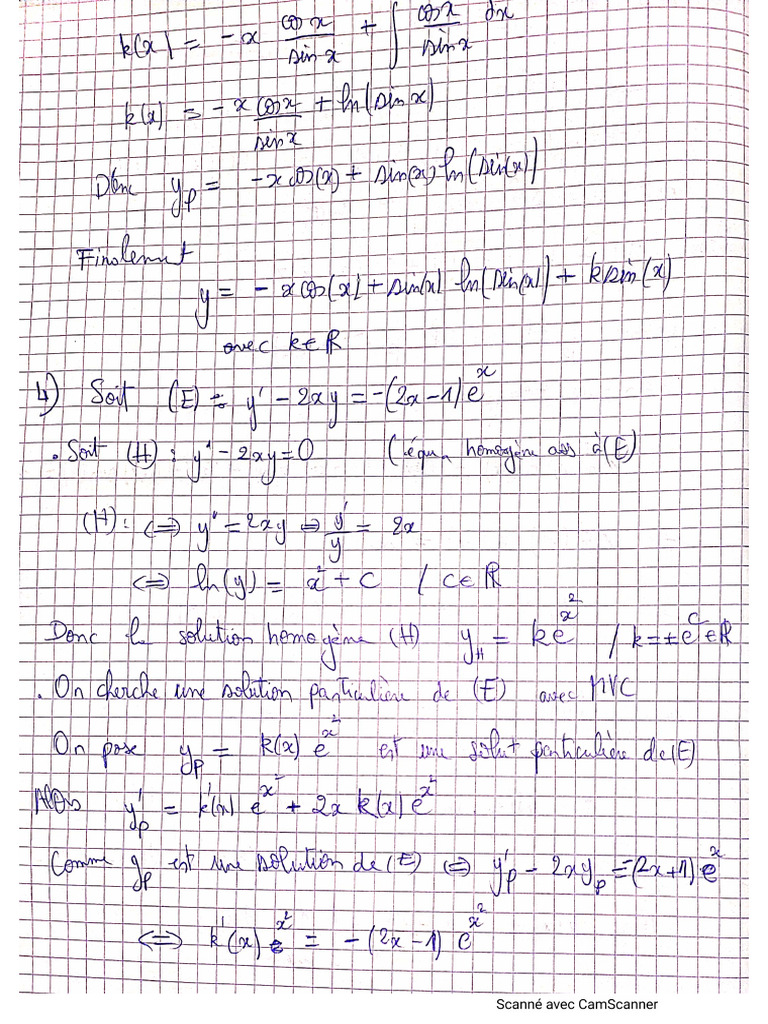 k(x) = -x cos x / sin x + ∫ cos x / sin x dx
k(x) = -x cos x / sin x + ln(sin x)
Donc yp = -x cos(x) + sin(x) ln(sin(x))
Finalement
y = -x cos(x) + sin(x) ln(sin(x)) + k sin(x)
avec k ∈ ℝ
4) Soit (E) : y' - 2xy = -(2x-1) e^x
. Soit (H) : y' - 2xy = 0 (équ. homogène ass à (E)
(H): ⟺ y' = 2xy ⟹ y'/y = 2x
⟺ ln(y) = x² + C / C ∈ ℝ
Donc la solution homogène (H) y_H = k e^x² / k = ± e^C ∈ ℝ
. On cherche une solution particulière de (E) avec MVC
On pose yp = k(x) e^x² est une solut particulière de (E)
Alors y'p = k'(x) e^x² + 2x k(x) e^x²
Comme yp est une solution de (E) ⟺ y'p - 2xyp = -(2x+1) e^x
⟺ k'(x) e^x² = -(2x-1) e^x²
Scanné avec CamScanner